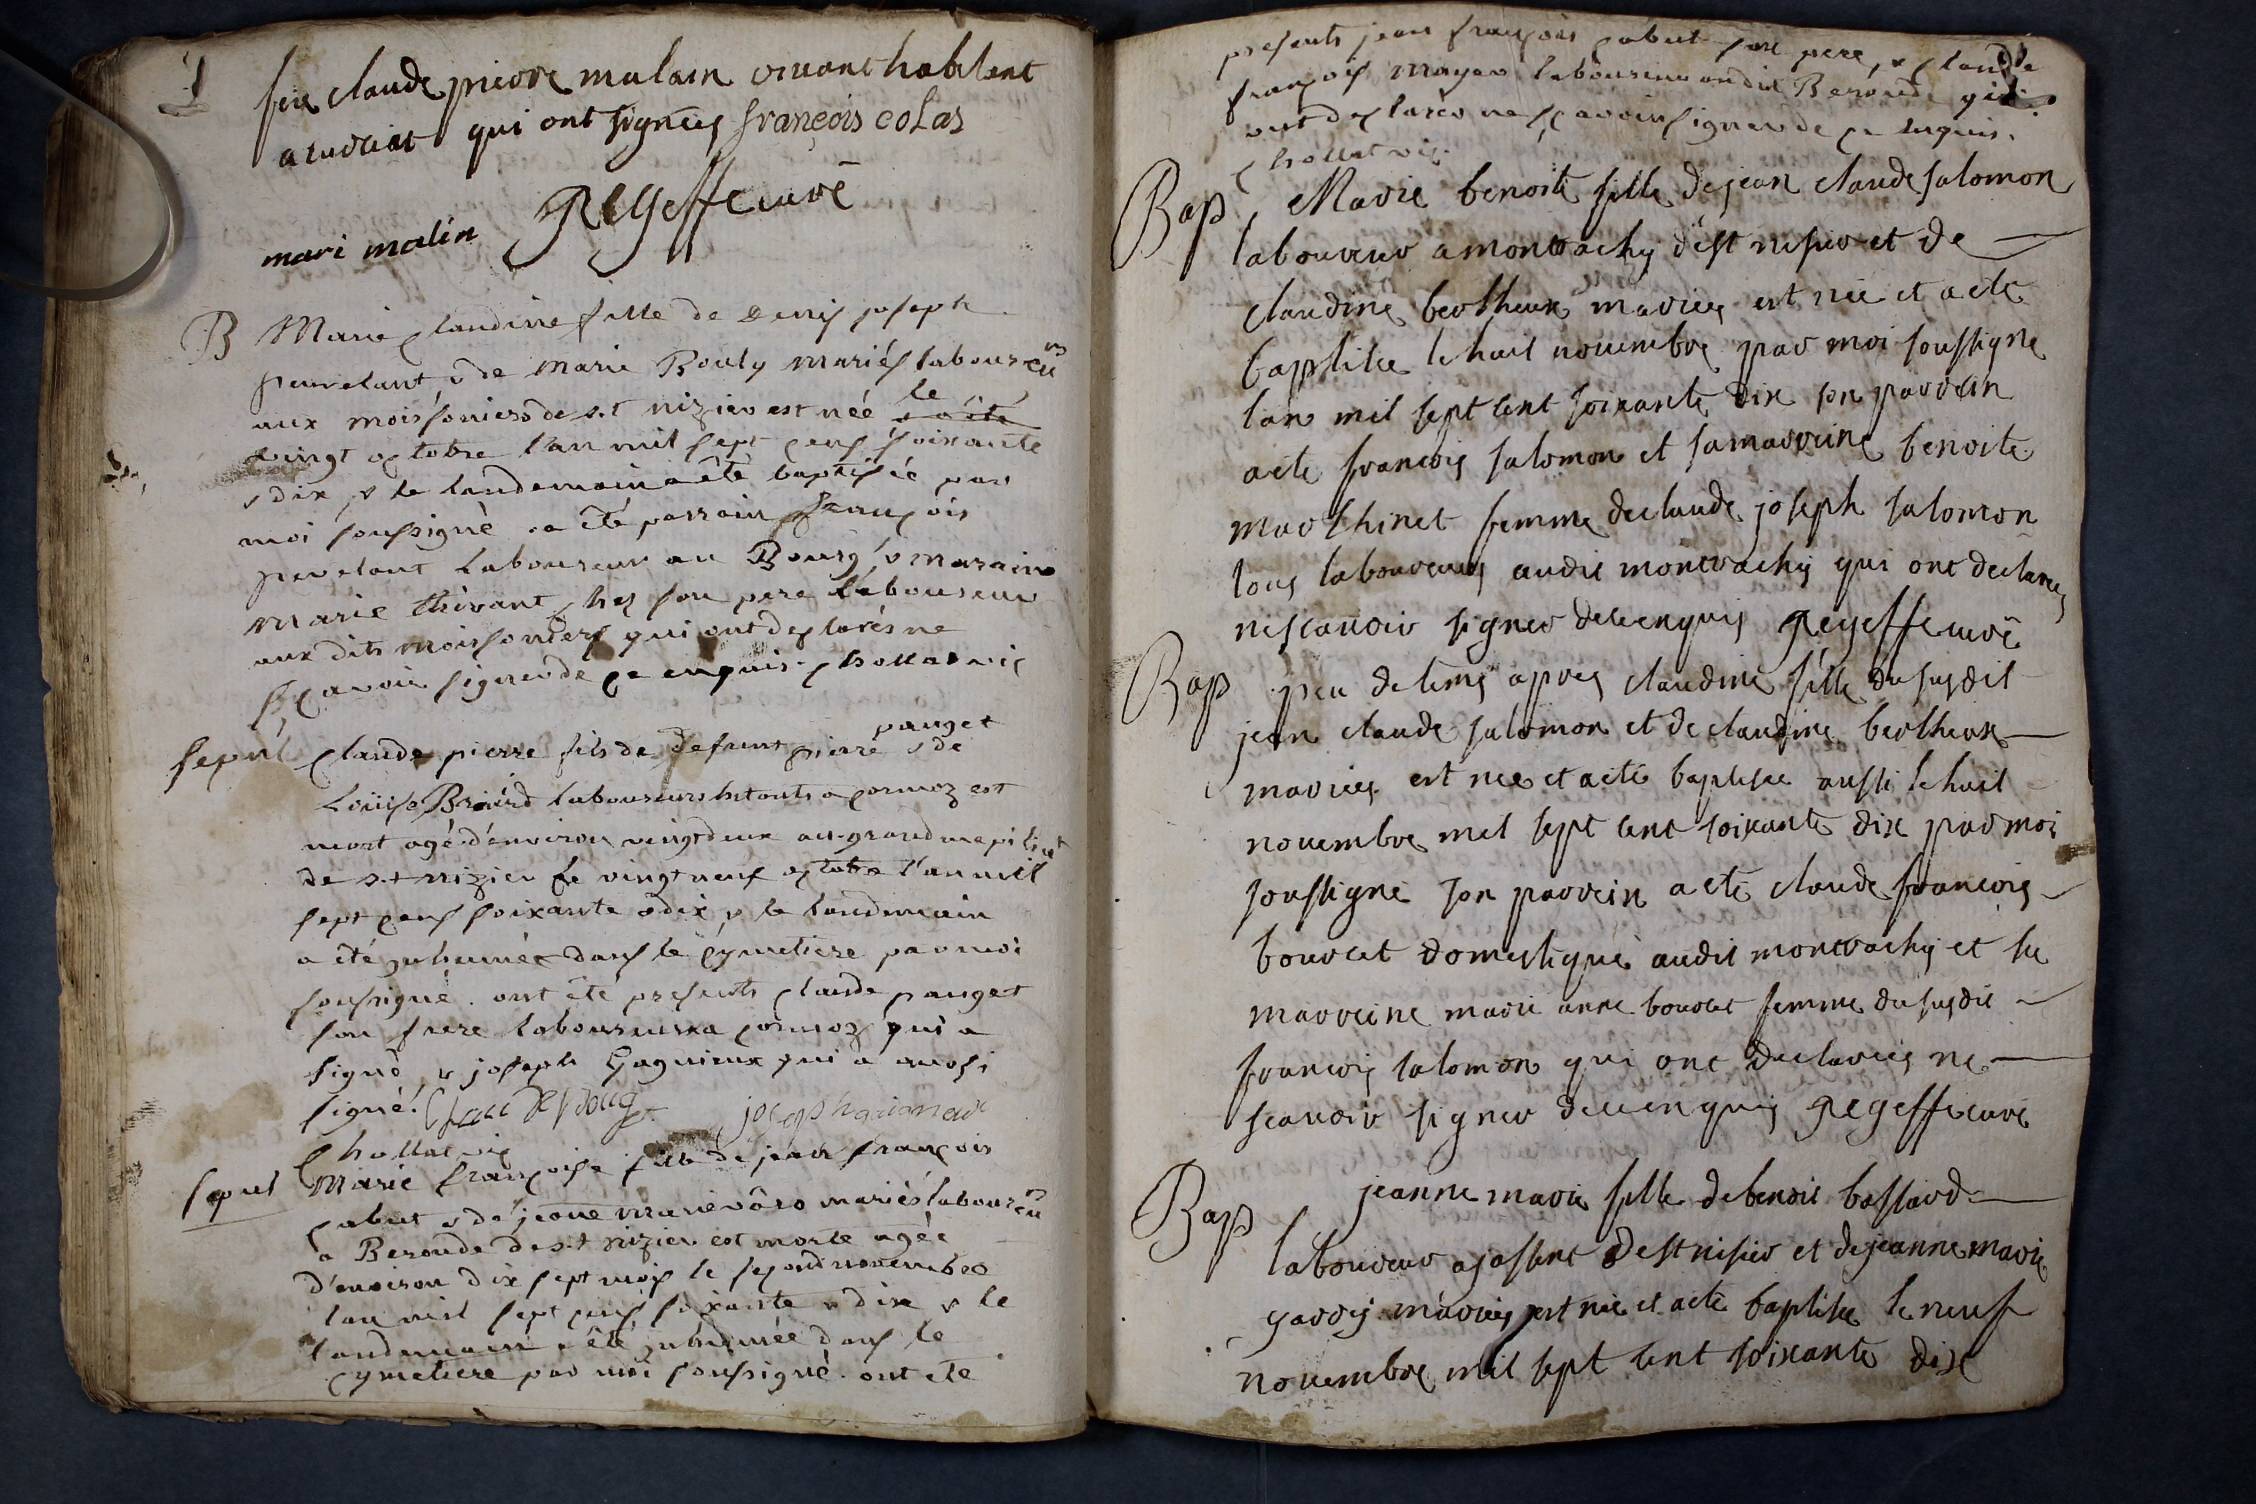 feu claude pierre malain vivant habitant
a curciat qui ont signés françois colas
mari malin Regeffeuure
B Marie claudine fille de denis joseph
pervelant & de marie Bouly mariés laboureurs
aux moissoniers de st nizier est née le
vingt octobre l'an mil sept cens soixante
& dix, & le landemain a été baptisée par
moi soussigné. a été parrain françois
pervelant Laboureur au Bourg, & maraine
marie thivant chez son pere laboureur
aux dits moissoniers qui ont declarés ne
sçavoir signer de ce enquis. chollat vic
sepul claude pierre fils de defunt pierre pauget & de
Loüise Briérd laboureurs a cormoz est
mort agé d'environ vingt deux au grand
de st nizier le vingt neuf octobre l'an mil
sept cens soixante & dix, & le landemain
a été inhumée dans le cymetiere par moi
soussigné. ont été presents claude pauget
son frere laboureur a cormoz qui a
signé, & joseph Gaguieux qui a aussi
signé.
chollat vic
sepul Marie françoise fille de jean françois
cabut & de jeane marie mariés laboureurs
a Beroude de st nizier est morte agée
d'environ dix sept mois le second novembre
l'an mil sept cens soixante & dix & le
landemain a été inhumée dans le
cymetiere par moi soussigné. ont ete
presents jean françois cabut son pere, & claude
françois mayer laboureur audit Beroude qui
ont declarés ne sçavoir signer de ce enquis.
chollat vic.
Bap Marie benoite fille de jean claude salomon
laboureur a montrachy de st nisier et de
claudine bertheux mariés est née et a ete
baptisee le huit nouembre par moi soussigne
lan mil sept cent soixante dix son parrein
a ete francois salomon et sa marreine benoite
marthinet femme de claude joseph salomon
tous laboureurs audit montrachy qui ont declares
ne scauoir signer de ce enquis Regeffeuure
Bap peu de tems apres claudine fille du susdit
jean claude salomon et de claudine bertheux
mariés est nee et a eté baptisée aussi le huit
nouembre mil sept cent soixante dix par moi
soussigné son parrein a eté claude francois
bouvet domestique audit montrachy et sa
marreine marie anne bouvet femme du susdit
francois salomon qui ont declareis ne
scauoir signer de ce enquis Regeffeuure
Bap jeanne marie fille de benoit bassard
laboureur a de st nisier et de jeanne marie
mariés est née et a eté baptisée le neuf
nouembre mil sept cent soixante dix